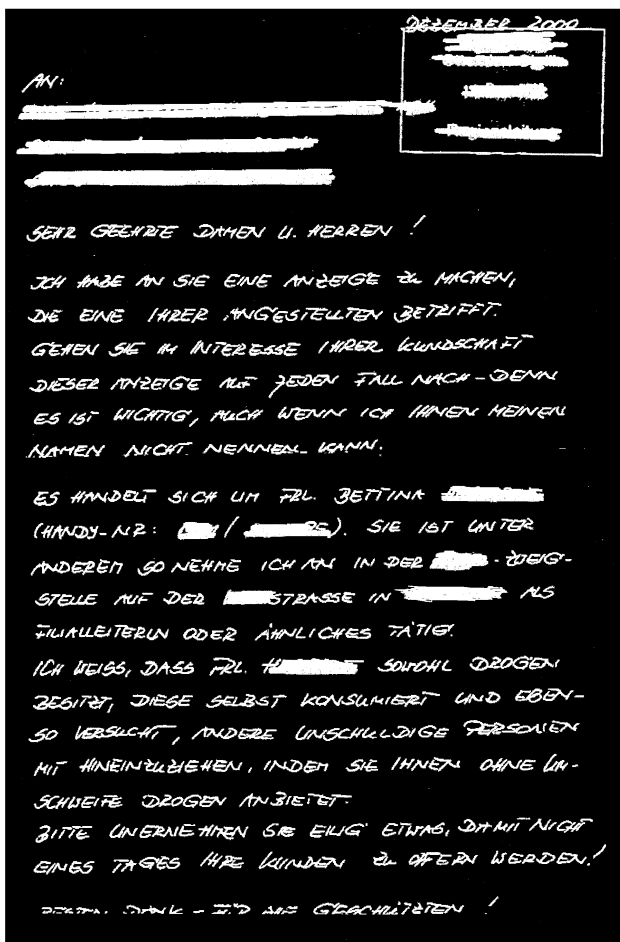 DEZEMBER 2000
Regionalleitung
AN:
SEHR GEEHRTE DAMEN U. HERREN !
ICH HABE AN SIE EINE ANZEIGE ZU MACHEN,
DIE EINE IHRER ANGESTELLTEN BETRIFFT.
GEHEN SIE IM INTERESSE IHRER KUNDSCHAFT
DIESER ANZEIGE AUF JEDEN FALL NACH - DENN
ES IST WICHTIG, AUCH WENN ICH IHNEN MEINEN
NAMEN NICHT NENNEN KANN.
ES HANDELT SICH UM FRL. BETTINA
(HANDY-NR: / ). SIE IST UNTER
ANDEREM SO NEHME ICH AN IN DER -ZWEIG-
STELLE AUF DER STRASSE IN ALS
FILIALLEITERIN ODER ÄHNLICHES TÄTIG.
ICH WEISS, DASS FRL. SOWOHL DROGEN
BESITZT, DIESE SELBST KONSUMIERT UND EBEN-
SO VERSUCHT, ANDERE UNSCHULDIGE PERSONEN
MIT HINEINZUZIEHEN, INDEM SIE IHNEN OHNE UM-
SCHWEIFE DROGEN ANBIETET.
BITTE UNERNEHMEN SIE EILIG ETWAS, DAMIT NICHT
EINES TAGES IHRE KUNDEN ZU OFERN WERDEN!
BESTEN DANK - GESCHÜTZTEN !